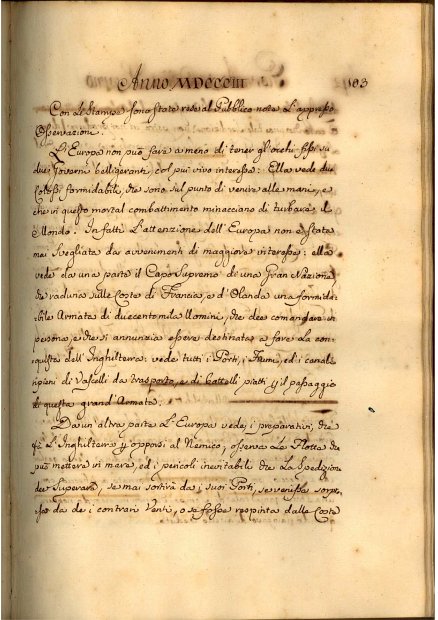 Anno MDCCCIII
103
Con le Stampe sono state rese al Pubblico note l'appresso
Osservazioni.
L'Europa non può fare a meno di tener gl'occhi fissi su
due Governi belligeranti, col più vivo interesse: Ella vede due
Colossi formidabili, che sono sul punto di venire alle mani, e
che in questo mortal combattimento minacciano di turbare il
Mondo. In fatti l'attenzione dell'Europa non è stata
mai svegliata da avvenimenti di maggiore interesse: ella
vede da una parte il Capo Supremo de una Gran Nazione
che raduna sulle Coste di Francia, e d'Olanda una formida-
bile Armata di duecentomila Uomini, che dee comandare in
persona, e che si annunzia essere destinata a fare la con-
quista dell'Inghilterra: vede tutti i Porti, i Fiumi, ed i canali
ripieni di Vascelli da trasporto, e di battelli piatti p il passaggio
di questa grand'Armata.
Da un altra parte l'Europa vede i preparativi, che
fà l'Inghilterra p opporsi al Nemico, osserva la Flotta che
può mettere in mare, ed i pericoli inevitabili che la Spedizione
dee Superare, se mai sortirà da i suoi Porti, se venisse sorpre-
sa da de i contrari Venti, o se fosse respinta dalle Coste